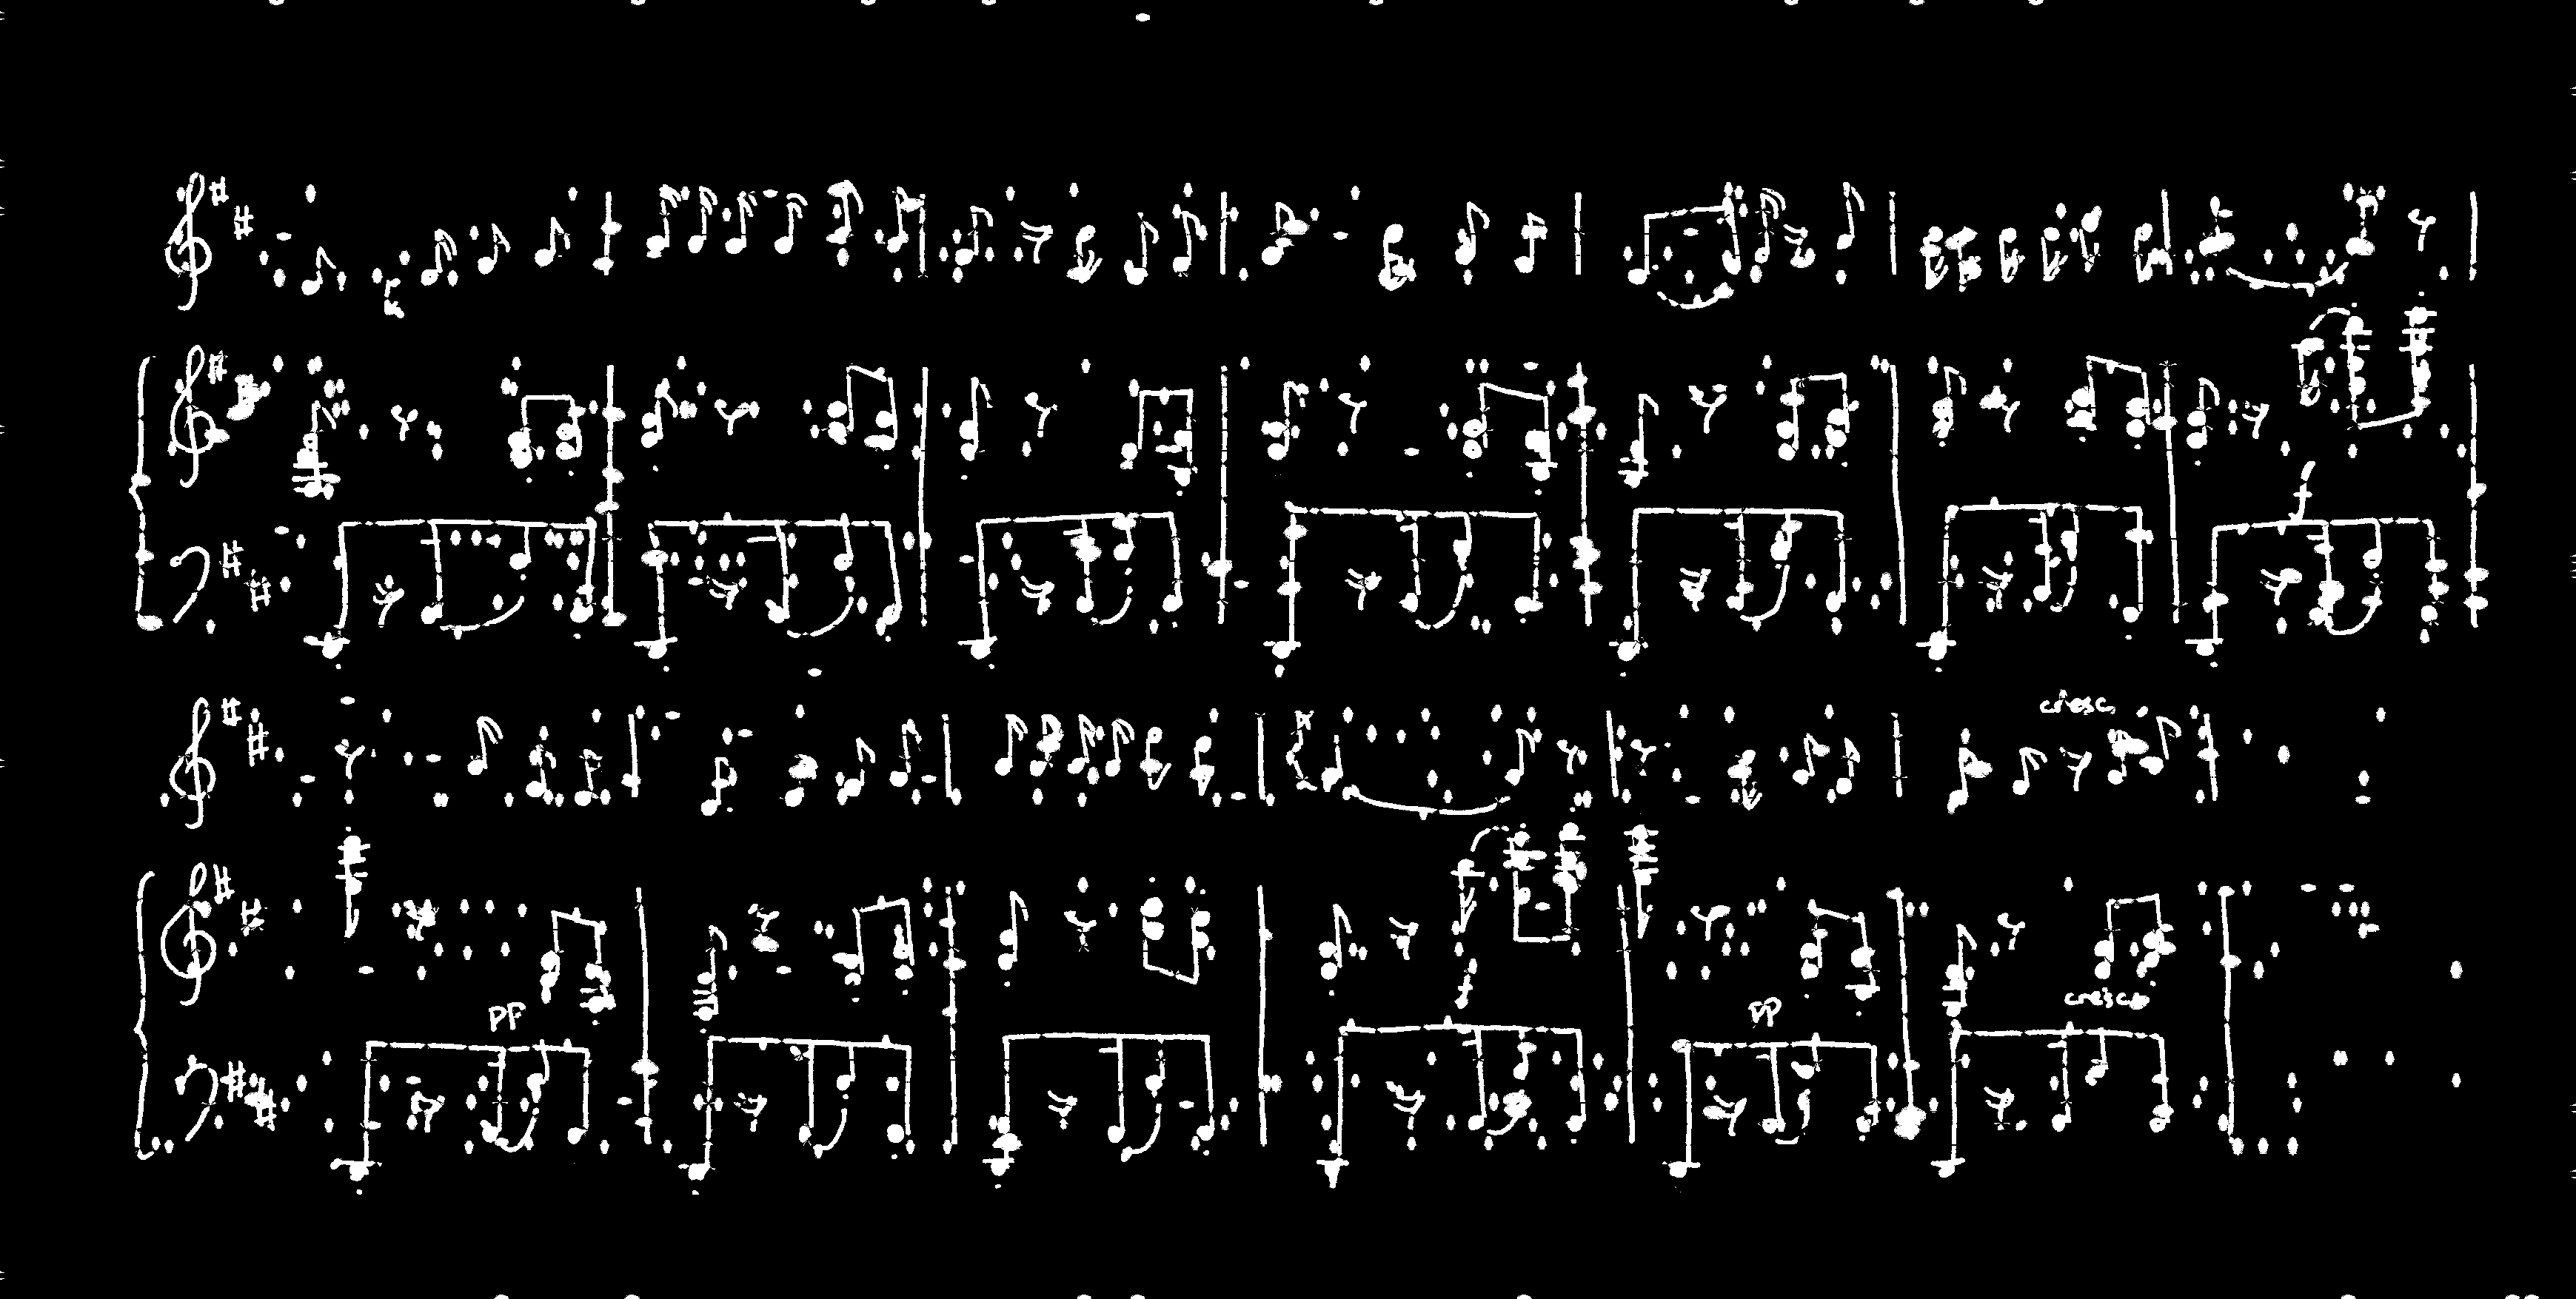 cresc.
PF
pp
cresc.